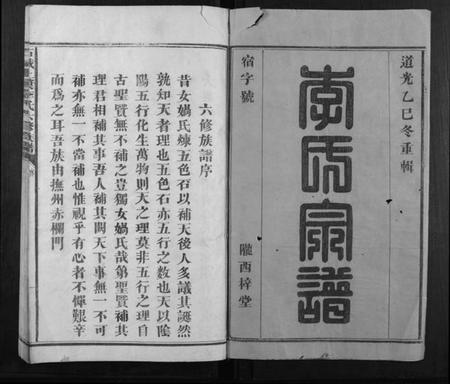 道光乙巳冬重輯
李氏宗譜
宿字號
隴西梓堂
六修族譜序
昔女媧氏煉五色石以補天後人多議其誕然
孰知天者理也五色石亦五行之數也天以陰
陽五行化生萬物則天之理莫非五行之理自
古聖賢無不補之豈獨女媧氏哉第聖賢補其
理君相補其事吾人補其間天下事無一不可
補亦無一不當補也惟視乎有心者不憚艱辛
而爲之耳吾族由撫州赤欄門